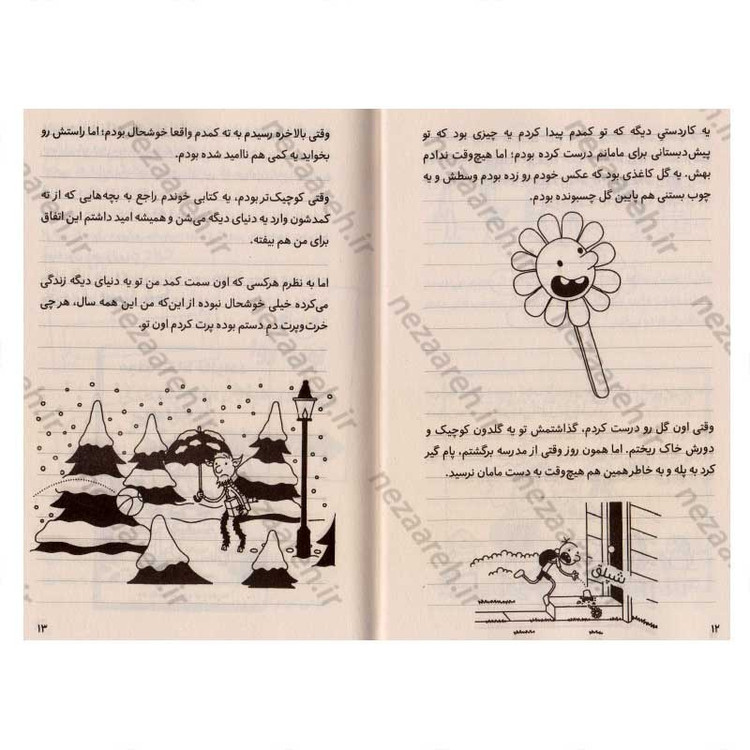 یه کاردستیِ دیگه که تو کمدم پیدا کردم یه چیزی بود که تو
پیش‌دبستانی برای مامانم درست کرده بودم؛ اما هیچ‌وقت ندادم
بهش. یه گل کاغذی بود که عکس خودم رو زده بودم وسطش و یه
چوب بستنی هم پایین گل چسبونده بودم.
وقتی اون گل رو درست کردم، گذاشتمش تو یه گلدون کوچیک و
دورش خاک ریختم. اما همون روز وقتی از مدرسه برگشتم، پام گیر
کرد به پله و به خاطر همین هم هیچ‌وقت به دست مامان نرسید.
شپلق
۱۲
وقتی بالاخره رسیدم به ته کمدم واقعا خوشحال بودم؛ اما راستش رو
بخواید یه کمی هم ناامید شده بودم.
وقتی کوچیک‌تر بودم، یه کتابی خوندم راجع به بچه‌هایی که از ته
کمدشون وارد یه دنیای دیگه می‌شن و همیشه امید داشتم این اتفاق
برای من هم بیفته.
اما به نظرم هرکسی که اون سمت کمد من تو یه دنیای دیگه زندگی
می‌کرده خیلی خوشحال نبوده از این‌که من این همه سال، هر چی
خرت‌وپرت دم دستم بوده پرت کردم اون تو.
۱۳
nezaareh.ir